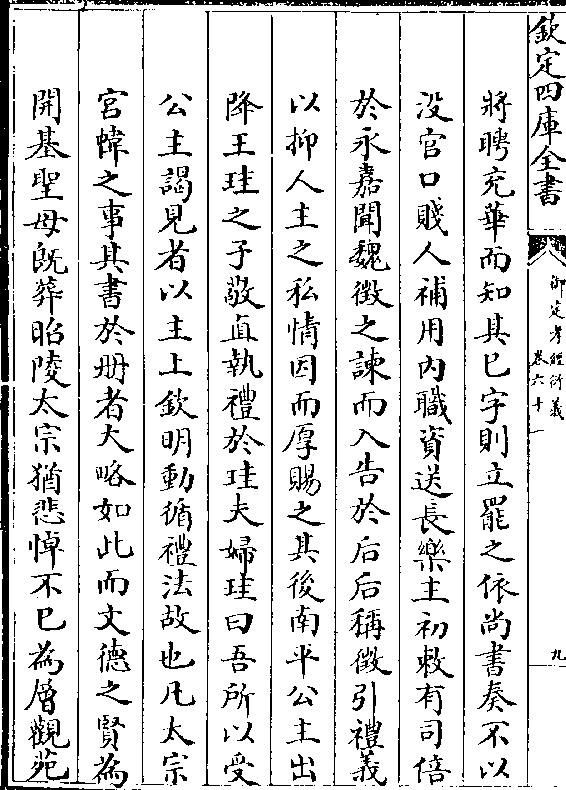 欽定四庫全書
御定孝經衍義
卷六十一
九
將聘充華而知其已字則立罷之依尚書奏不以
沒宫口賤人補用内職資送長樂主初敕有司倍
於永嘉聞魏徵之諫而入告於后后稱徵引禮義
以抑人主之私情因而厚賜之其後南平公主出
降王珪之子敬直執禮於珪夫婦珪曰吾所以受
公主謁見者以主上欽明動循禮法故也凡太宗
宮幃之事其書於冊者大略如此而文德之賢為
開基聖母旣葬昭陵太宗猶悲悼不已為層觀苑